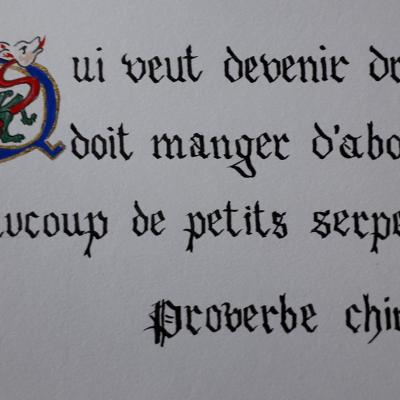 Qui veut devenir dr
doit manger d'abo
aucoup de petits serpe
Proverbe chin